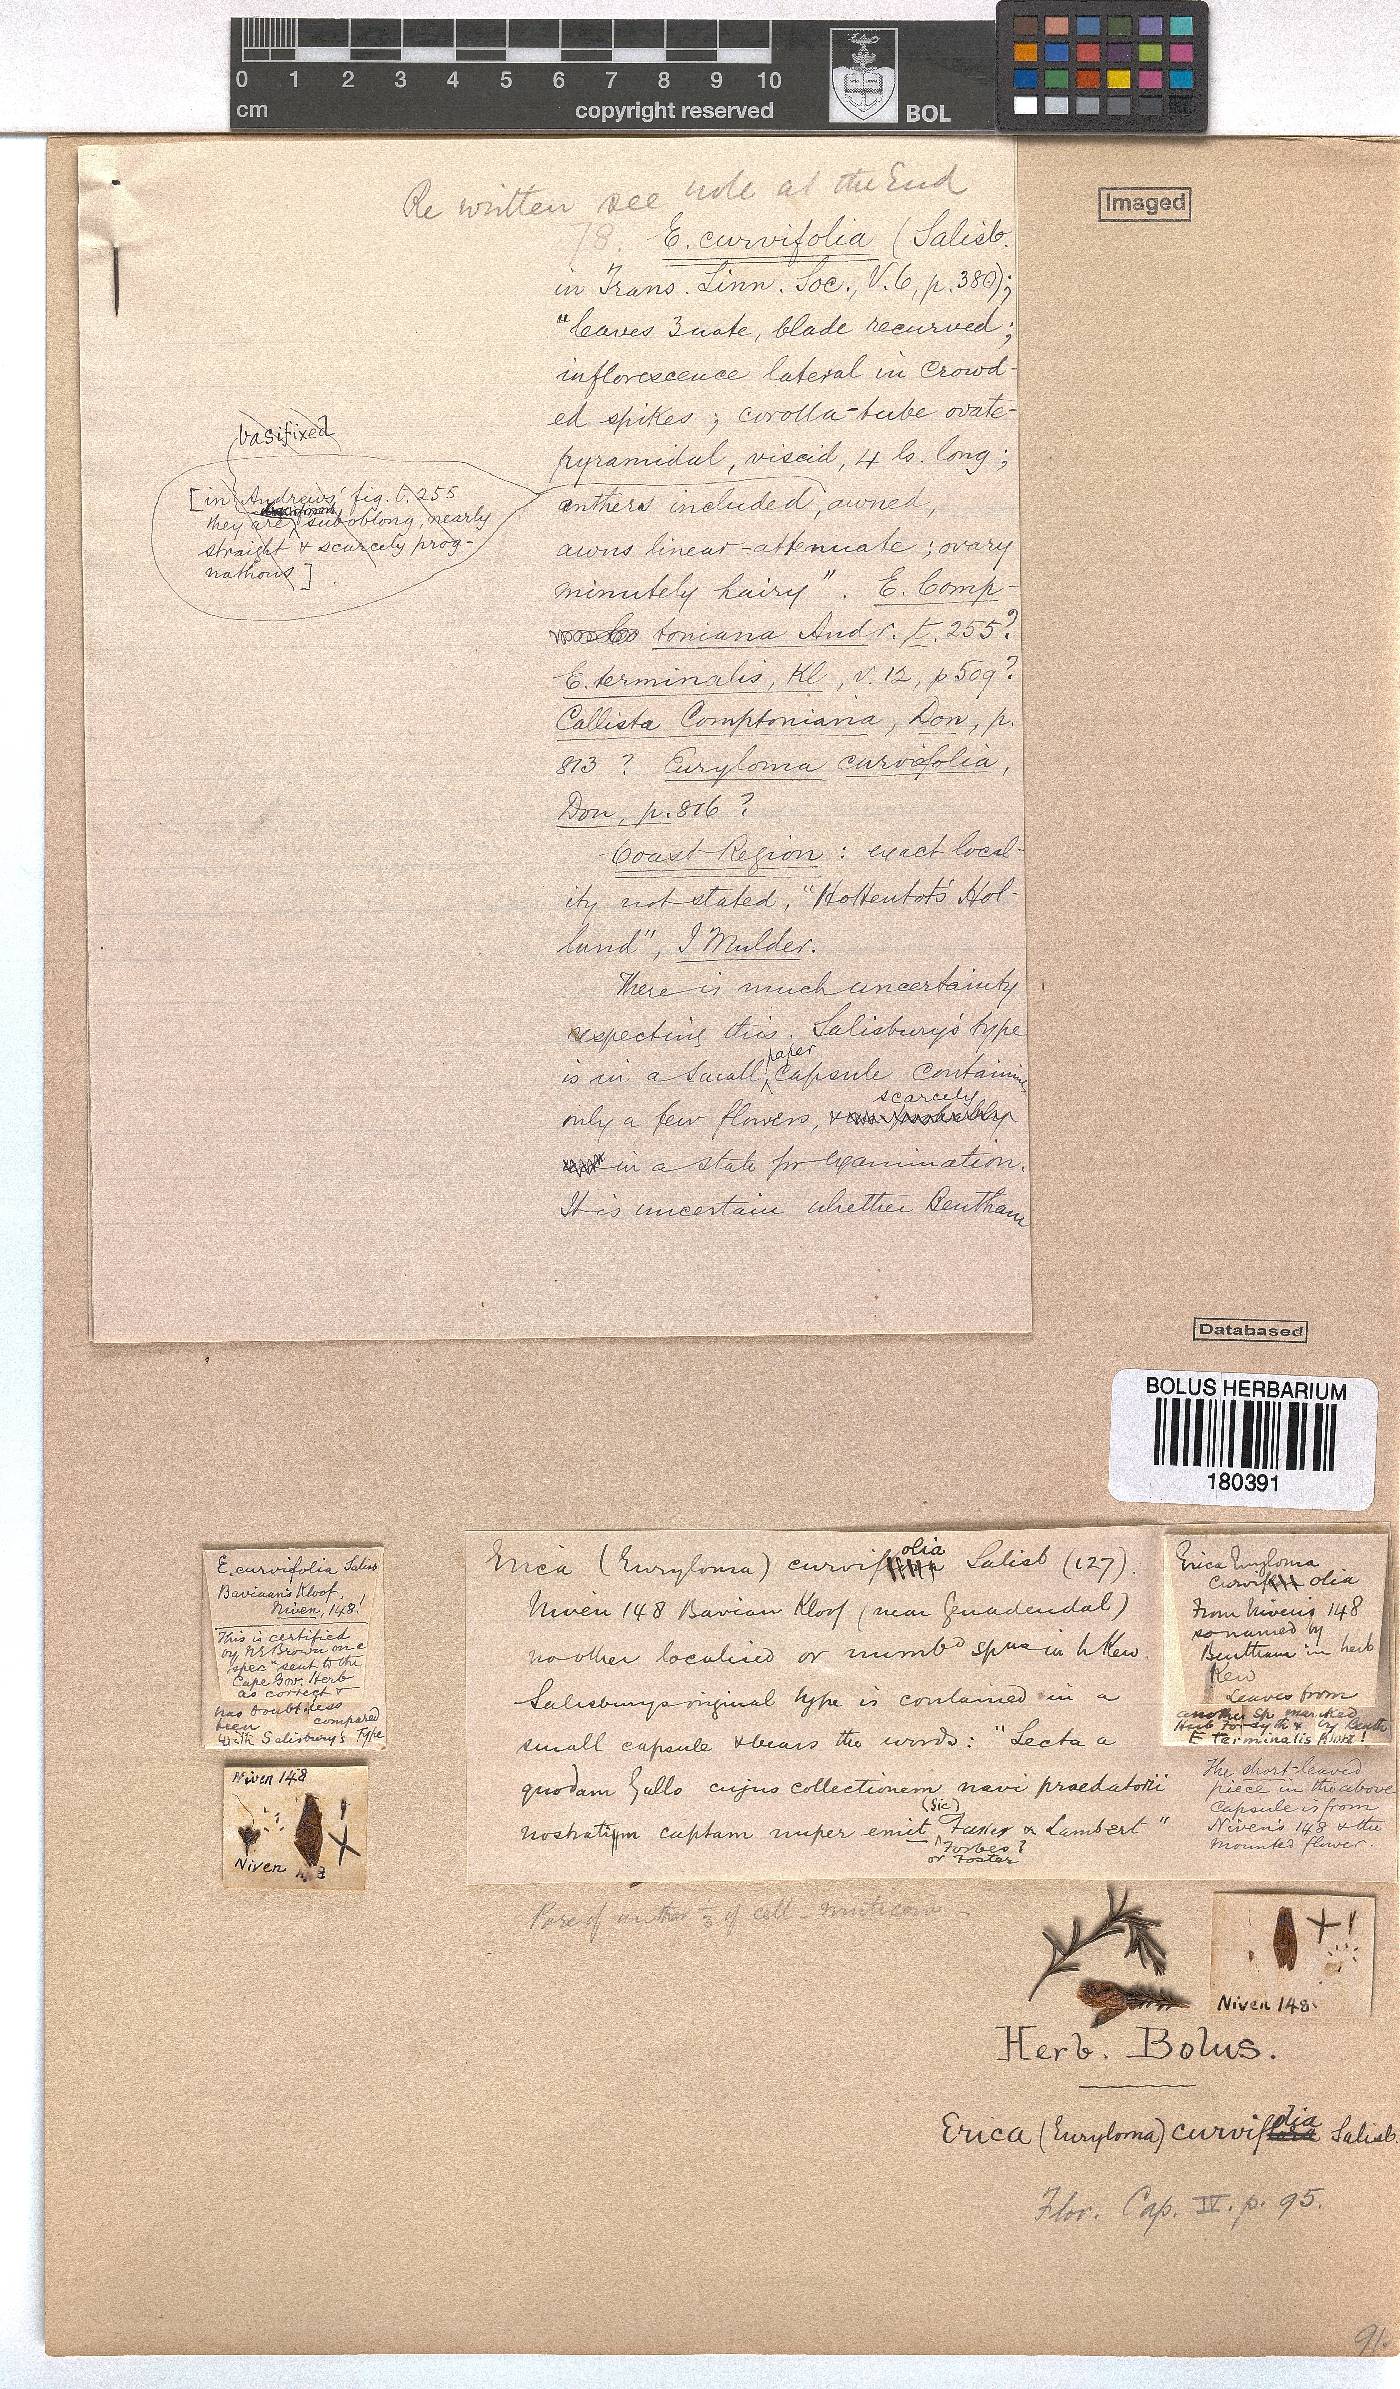 0 1 2 3 4 5 6 7 8 9 10
cm
copyright reserved
BOL
Imaged
Re written see note at the End
78. E. curvifolia (Salisb.
in Trans. Linn. Soc., V.6, p. 380);
"leaves 3nate, blade recurved;
inflorescence lateral in crowd-
ed spikes; corolla-tube ovate-
pyramidal, viscid, 4 ls. long;
anthers included, awned,
awns linear-attenuate; ovary
minutely hairy". E. Comp-
toniana Andr. t. 255?
E. terminalis, Kl, v. 12, p 509?
Callista Comptoniana, Don, p.
813? Euryloma curvifolia,
Don, p. 816?
Coast Region: exact local-
ity not stated, "Hottentot's Hol-
land", I Mulder.
There is much uncertainty
respecting this. Salisbury's type
is in a small paper capsule containing
only a few flowers, & scarcely
in a state for examination.
It is uncertain whether Bentham
basifixed
[in Andrews' fig. t. 255
they are suboblong, nearly
straight & scarcely prog-
nathous]
Databased
BOLUS HERBARIUM
180391
E. curvifolia Salisb
Baviaan's Kloof,
Niven, 148!
This is certified
by NE Brown on a
specn sent to the
Cape Gov. Herb
as correct &
has doubtless
been compared
with Salisbury's Type
Niven 148
Niven
Erica (Euryloma) curvifolia Salisb (127).
Niven 148 Bavian Kloof (near Genadendal)
no other localised or numbd spns in h Kew.
Salisburys original type is contained in a
small capsule & bears the words: "Lecta a
quodam Gallo cujus collectionem navi praedatorii
nostratium captam nuper emit (sic) & Lambert"
Forbes?
or Foster
Erica Euryloma
curvifolia
From Niven's 148
so named by
Bentham in herb
Kew
Leaves from
another sp marked
Herb Forsyth & by Benth
E terminalis Klotz!
The short-leaved
piece in the above
capsule is from
Niven's 148 & the
mounted flower.
Pore of anther 1/3 of cell - muticous -
Niven 148.
Herb. Bolus.
Erica (Euryloma) curvifolia Salisb.
Flor. Cap. IV. p. 95.
91.